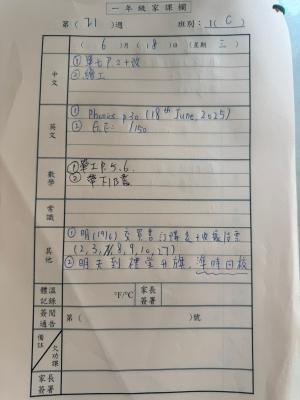 一年級家課欄
第( 21 )週 班別： 1( C )
( 6 )月( 18 )日(星期 三 )
中文
① 單七 P.2+改
② 繪工
英文
① Phonics p.30 (18th June, 2025)
② G.E: /150
數學
① 單工P.5, 6.
② 帶下1B書
常識
其他
① 明(19/6) 交買書訂購表+收據
② 明天到禮堂升旗，準時回校
體溫記錄 °F/°C 家長簽署
簽閱通告 第( )號
備註 欠功課
家長簽署